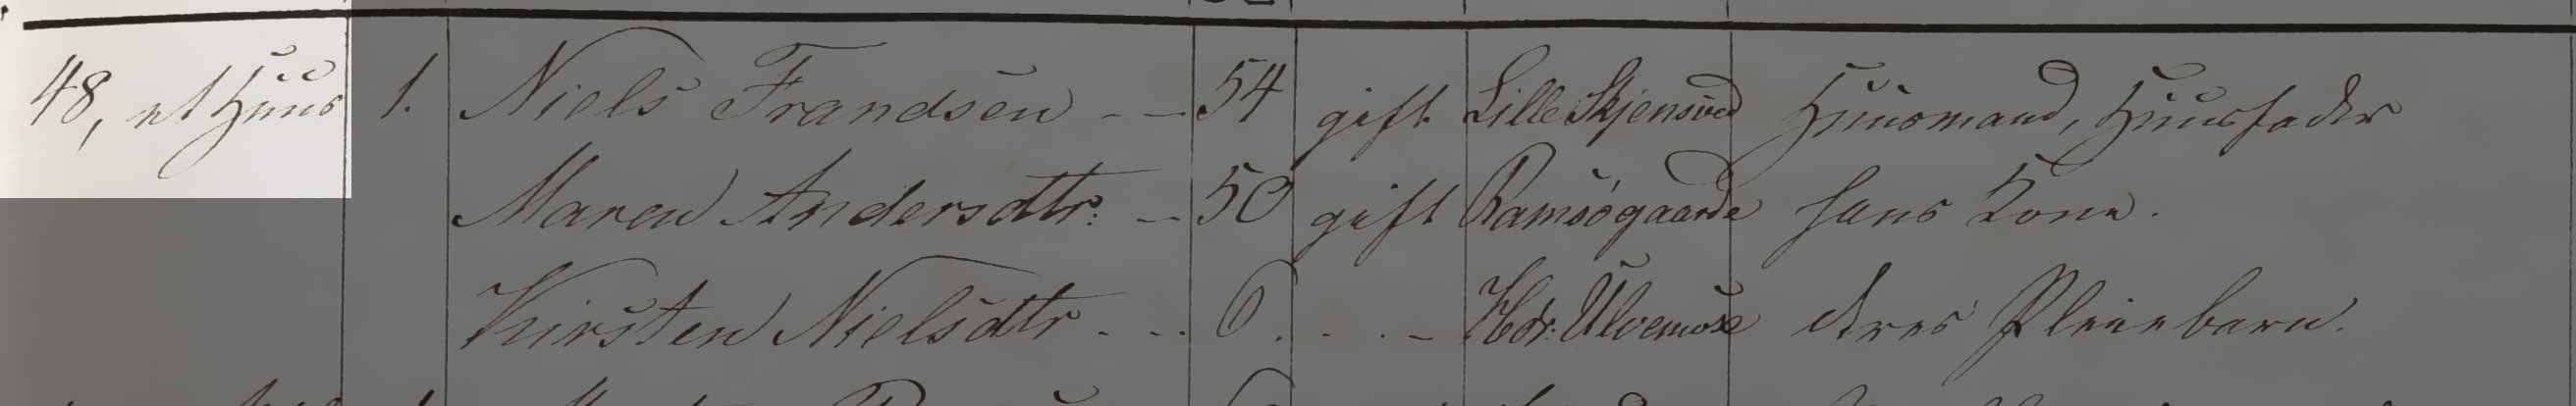 48, et Huus 1. Niels Frandsen - - 54 gift Lille Skjensved Huusmand, Huusfader
Maren Andersdtr: - - 50 gift Ramsögaarde hans Kone.
Kirsten Nielsdtr - - - 6. . . - Hdr: Ulvemose deres Pleiebarn.